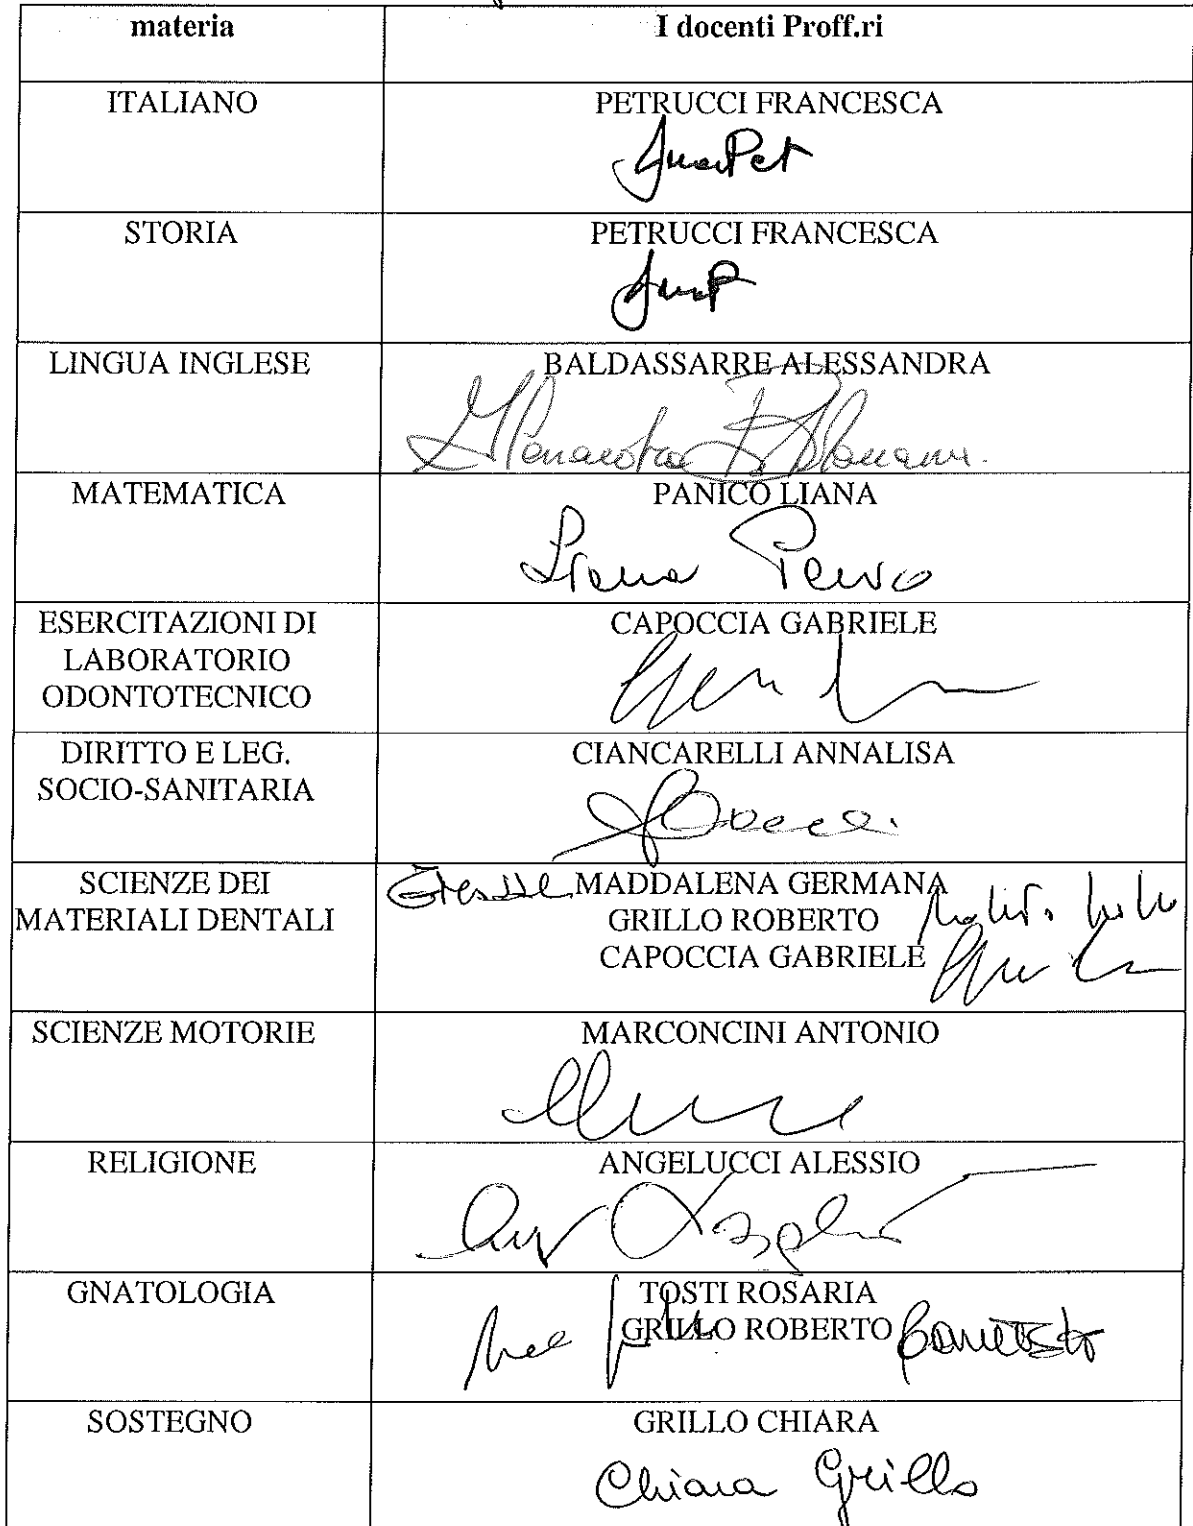 materia
I docenti Proff.ri
ITALIANO
PETRUCCI FRANCESCA
STORIA
PETRUCCI FRANCESCA
LINGUA INGLESE
BALDASSARRE ALESSANDRA
MATEMATICA
PANICO LIANA
Liana
ESERCITAZIONI DI
LABORATORIO
ODONTOTECNICO
CAPOCCIA GABRIELE
DIRITTO E LEG.
SOCIO-SANITARIA
CIANCARELLI ANNALISA
SCIENZE DEI
MATERIALI DENTALI
MADDALENA GERMANA
GRILLO ROBERTO
CAPOCCIA GABRIELE
SCIENZE MOTORIE
MARCONCINI ANTONIO
RELIGIONE
ANGELUCCI ALESSIO
GNATOLOGIA
TOSTI ROSARIA
GRILLO ROBERTO
SOSTEGNO
GRILLO CHIARA
Chiara Grillo